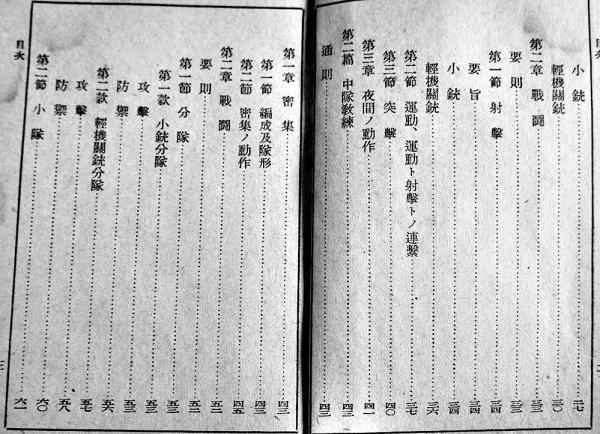 小銃………二七
輕機關銃………三〇
第二章 戰鬪………三三
要則………三三
第一節 射擊………三四
要旨………三四
小銃………三四
輕機關銃………三六
第二節 運動、運動ト射擊トノ連繫………三七
第三節 突擊………四〇
第三章 夜間ノ動作………四一
第二篇 中隊敎練………四三
通則………四三
第一章 密集………四三
第一節 編成及隊形………四三
第二節 密集ノ動作………四五
第二章 戰鬪………五二
要則………五二
第一節 分隊………五三
第一款 小銃分隊………五三
攻擊………五三
防禦………五五
第二款 輕機關銃分隊………五六
攻擊………五七
防禦………五八
第二節 小隊………六〇
六一
目次